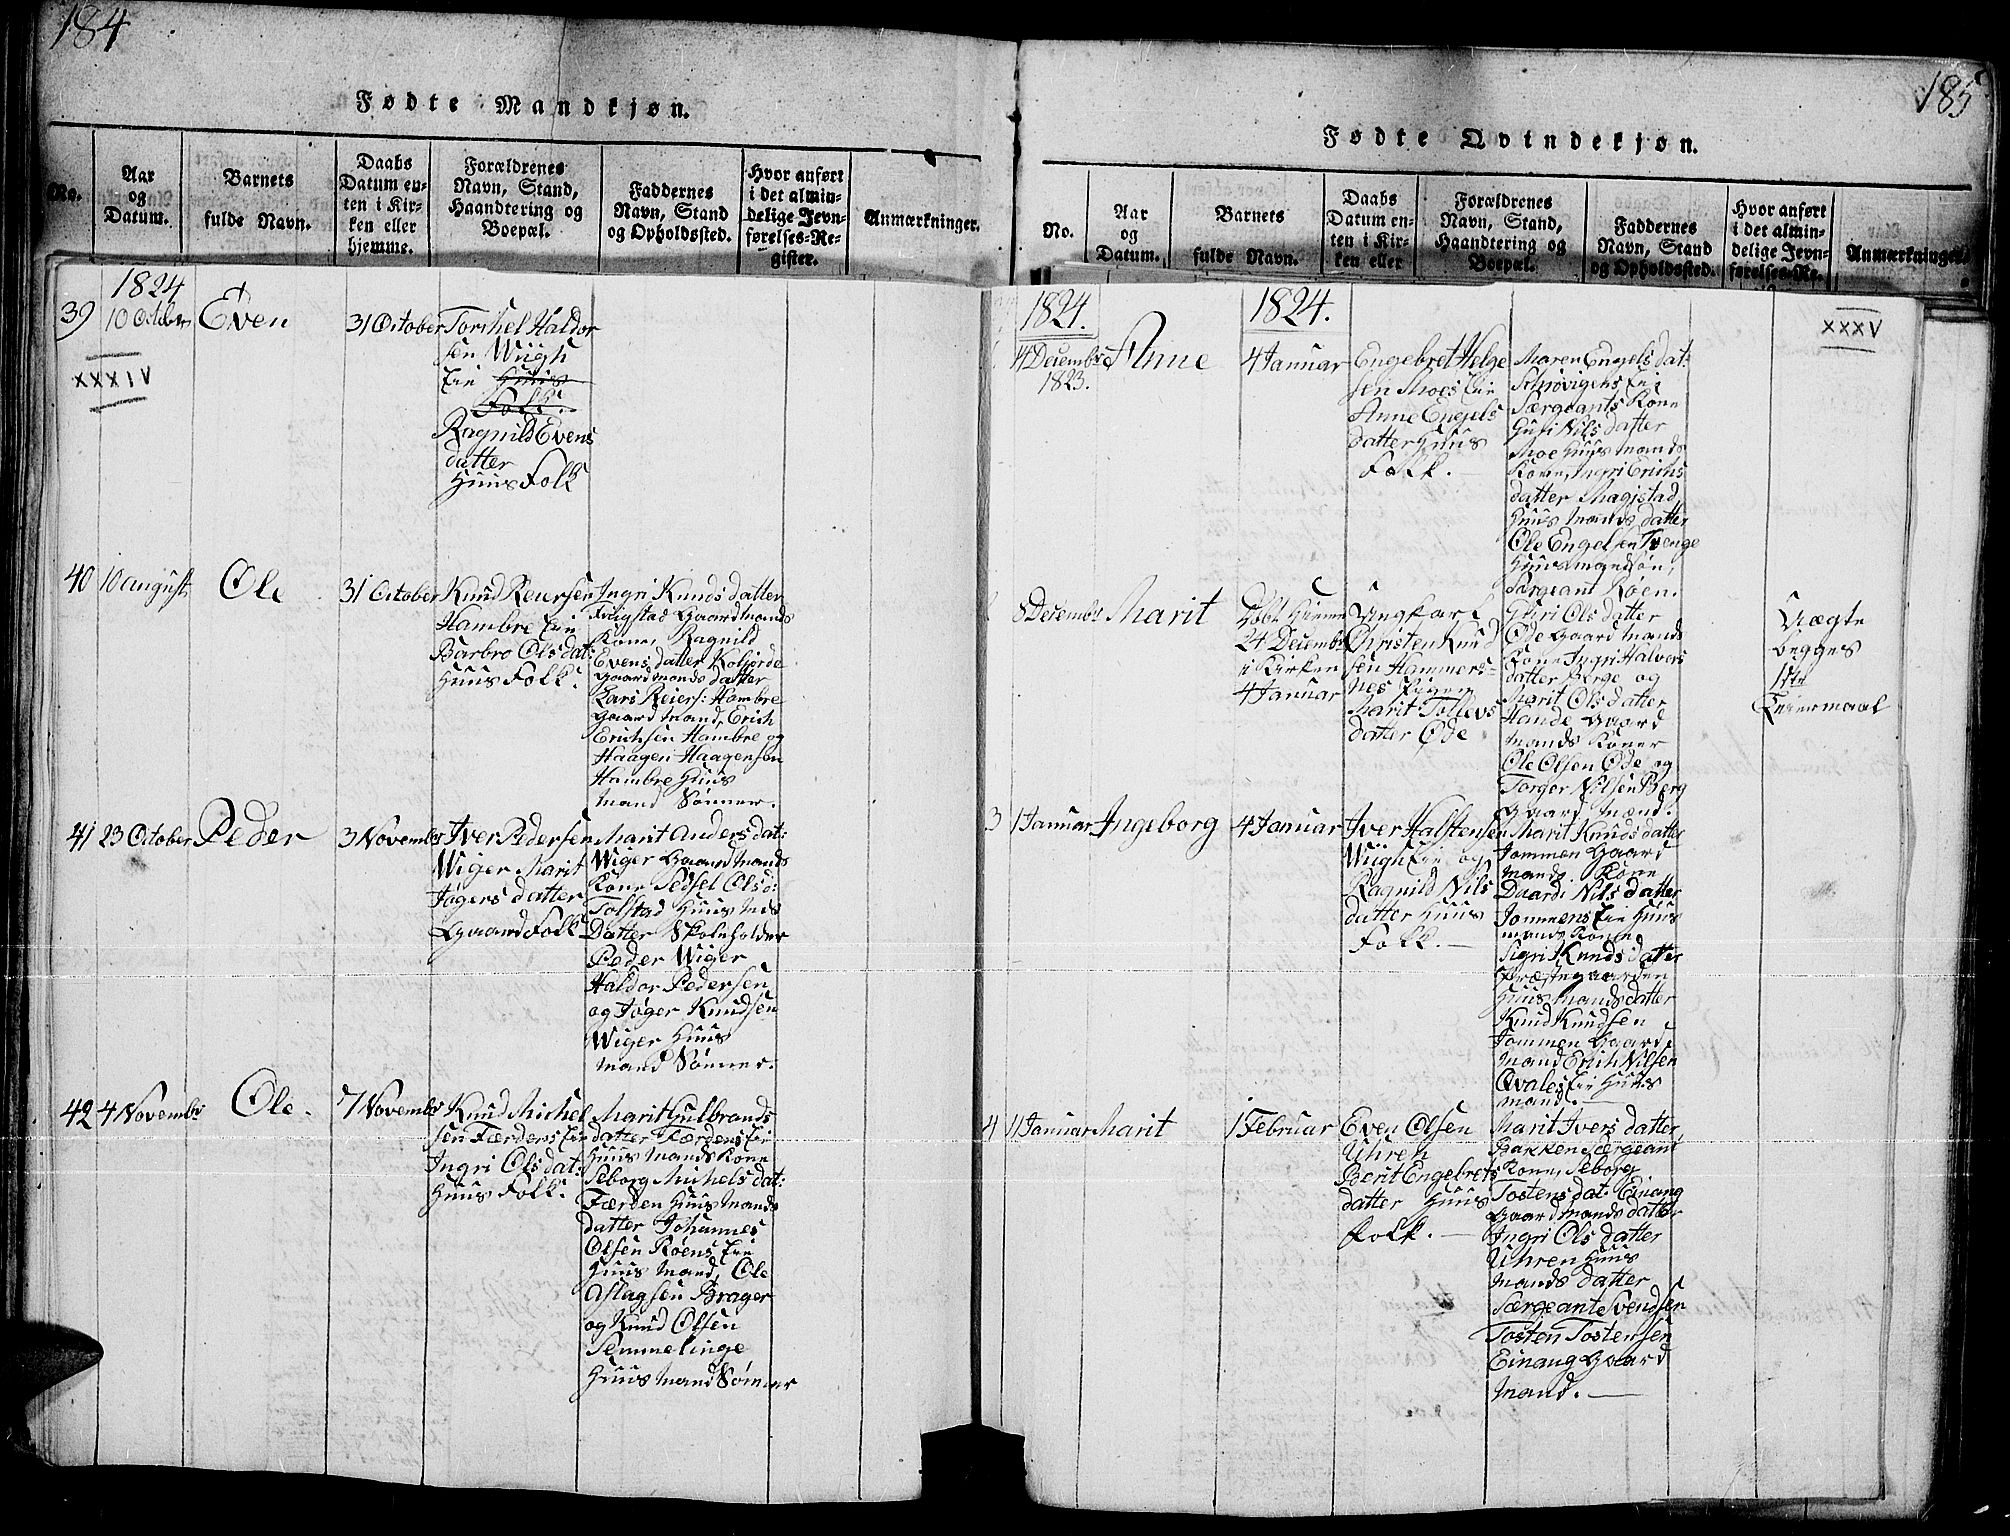 184
Fødte Mandkjøn.
No.
Aar
og
Datum.
Barnets
fulde Navn.
Daabs
Datum en-
ten i Kir-
ken eller
hjemme.
Forældrenes
Navn, Stand,
Haandtering og
Boepæl.
Faddernes
Navn, Stand
og Opholdssted.
Hvor anført
i det almin-
delige Jevn-
førelses-Re-
gister.
Anmærkninger.
1824
39
10 October
Even
31 October
Torchel Haldor
sen Wiigh
Eie Huus
Folk.
Ragnild Evens
datter
Huus Folk
XXXIV
40
10 august
Ole
31 October
Knud Reiersen
Hambre Eie
Barbro Olsdat:
Huus Folk.
Ingri Knudsdatter
Gaardmands
Kone, Ragnild
Evensdatter Koljorde
Gaardmands datter
Lars Reiers: Hambre
Gaardmand, Erich
Erichsen Hambre og
Haagen Haagensen
Hambre Huus
mand Sønner.
41
23 October
Peder
3 Novembr
Iver Pedersen
Wiger Marit
Jøgers datter
Gaard Folk
Marit Andersdat:
Wiger Gaardmands
Kone Sidsel Olsd:
Tolstad Huus Mds
Datter Skoleholder
Peder Wiger
Haldor Pedersen
og Jøger Knudsen
Wiger Huus
mand Sønner.
42
4 Novembr
Ole.
7 Novembr
Knud Michel
sen Færdens Eie
Ingri Olsdat:
Huus Folk.
Marit Gulbrands
datter Færdens Eie
Huusmands Kone
Seborg Michelsdat:
Færden Huusmands
datter Johannes
Olsen Røens Eie
Huusmand, Ole
Aslagsen Brager
og Knud Olsen
Semmelinge
Huusmand Sønner
185
Fødte Qvindekjøn.
No.
Aar
og
Datum.
Barnets
fulde Navn.
Daabs
Datum en-
ten i Kir-
ken eller
Forældrenes
Navn, Stand,
Haandtering og
Boepæl.
Faddernes
Navn, Stand
og Opholdssted.
Hvor anført
i det almin-
delige Jevn-
førelses-Re-
Anmærkninger.
1824.
1824.
XXXV
4 Decembr
1823.
Anne
4 Januar
Engebret Helge
sen Moes Eie
Anne Engels
datter Huus
Folk.
Maren Engelsdat:
Eie
Særgeants Kone
Guri Nilsdatter
Moe Huusmands
Kone, Ingri Erichs
datter Magistad
Huusmands datter
Ole Engelsen Tvenge
Huusmandsøn,
Sargeant Røen.
8 Decembr
Marit
Døbt Hiemme
24 Decembr
i Kirken
4 Januar
Ungkarl
Christen Knud
sen Hammers-
nes Pigen
Marit Tollevs
datter Øde
Olsdatter
Øde Gaardmands
Kone Ingri Halvors
datter Berge og
Marit Olsdatter
Hande Gaard
mands Koner
Ole Olsen Øde og
Torger Nilsen Berg
Gaard mænd.
Uægte
begges
1ste
Leiermaal
3
1 Januar
Ingeborg
4 Januar
Iver Halstensen
Wiigh Eie og
Ragnild Nils
datter Huus
Folk.
Marit Knudsdatter
Jommen Gaard
mands Kone
Nilsdatter
Jommens Eie Huus
mands Kone
Sigri Knudsdatter
Præstegaarden
Huusmands datter
Knud Knudsen
Jommen Gaard
mand Erich Nilsen
Qvales Eie Huus
mand.
4
11 Januar
Marit
1 Februar
Even Olsen
Uhren
Berit Engebrets
datter Huus
Folk.
Marit Ivers datter
Bakken Særgeant
Kone, Seborg
Tostensdat: Einang
Gaardmands datter
Ingri Olsdatter
Uhren Huus
mands datter
Særgeant Svendsen
Tosten Tostensen
Einang Gaard
mand.